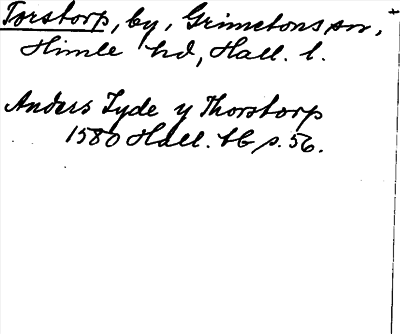 Torstorp, by, Grimetons sn,
Himle hd, Hall. l.
Anders Tyde y Thorstorp
1580 Hall. tb s. 56.